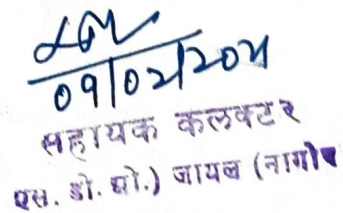 09/02/2021
सहायक कलक्टर
एस. डी. ओ.) जायल (नागौर